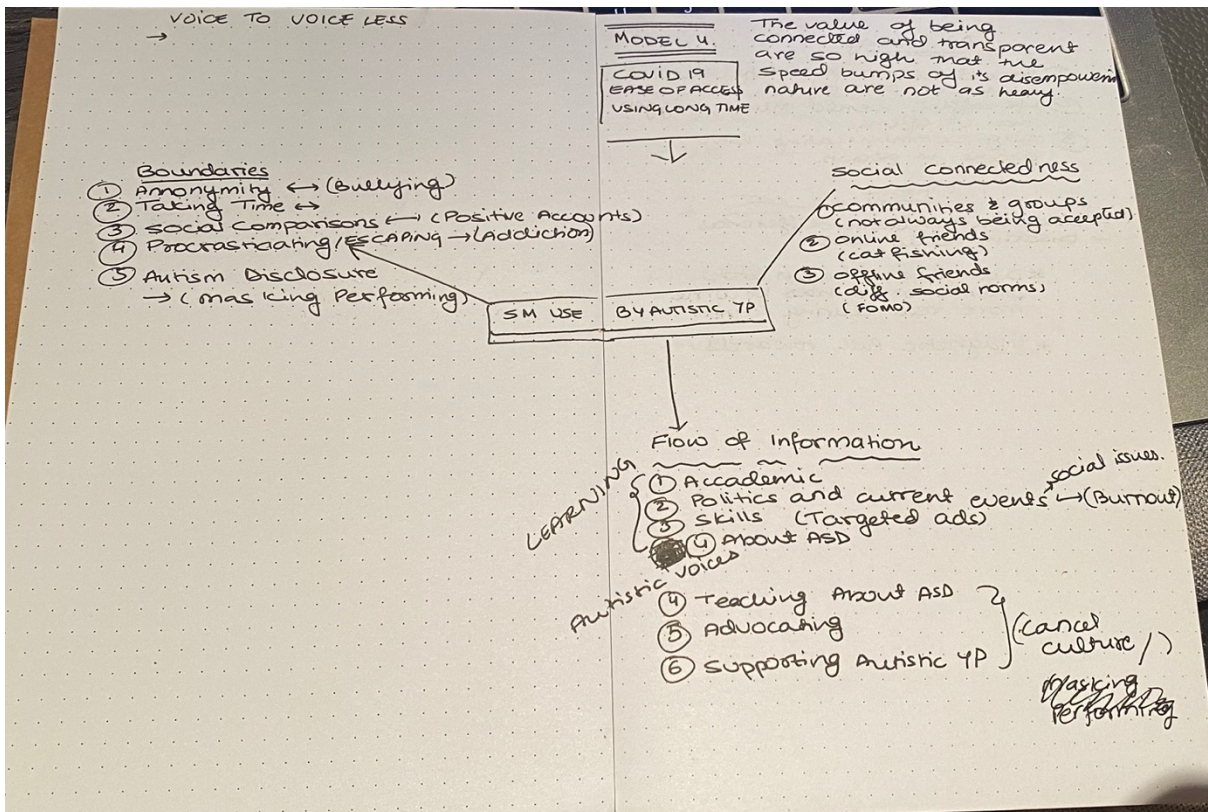 VOICE TO VOICE LESS
→
MODEL 4.
COVID 19
EASE OF ACCESS
USING LONG TIME
The value of being
connected and transparent
are so high that the
speed bumps of its disempowering
nature are not as heavy.
Boundaries
① Annonymity ↔ (Bullying)
② Taking Time ↔
③ Social Comparisons ↔ (Positive Accounts)
④ Procrasticating/ESCAPING → (Addiction)
⑤ Autism Disclosure
→ (masking Performing)
Social Connectedness
① communities & groups
(not always being accepted)
② online friends
(cat fishing)
③ offline friends
(diff. social norms)
(FOMO)
SM USE BY AUTISTIC YP
Flow of Information
LEARNING
① Accademic
② Politics and current events → (Burnout)
social issues.
③ Skills (Targeted ads)
④ About ASD
Autistic voices
④ Teaching About ASD
⑤ Advocating
⑥ Supporting Autistic YP
(cancel
culture/)
Masking
Performing